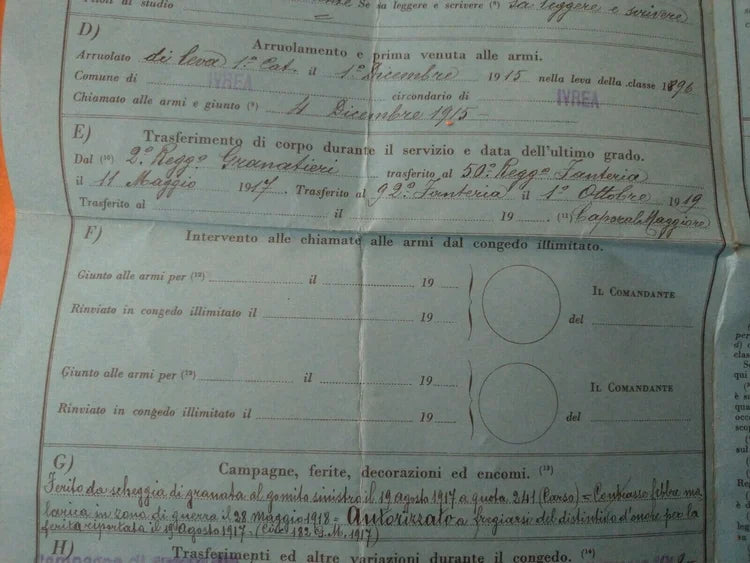 Arruolato di leva 1ª Cat. il 1º Dicembre 1915 nella leva della classe 1896
Se sa leggere e scrivere (8) sa leggere e scrivere
D)
Arruolamento e prima venuta alle armi.
Comune di IVREA circondario di IVREA
Chiamato alle armi e giunto (9) 4 Dicembre 1915
E)
Trasferimento di corpo durante il servizio e data dell'ultimo grado.
Dal (10) 2º Regg.º Granatieri trasferito al 50º Regg.º Fanteria
il 11 Maggio 1917 Trasferito al 92º Fanteria il 1º Ottobre 1919
Trasferito al il 19 (11) Caporal Maggiore
F)
Intervento alle chiamate alle armi dal congedo illimitato.
Giunto alle armi per (12) il 19
Rinviato in congedo illimitato il 19
IL COMANDANTE
del
Giunto alle armi per (12) il 19
Rinviato in congedo illimitato il 19
IL COMANDANTE
del
G)
Campagne, ferite, decorazioni ed encomi. (13)
Ferito da scheggia di granata al gomito sinistro il 19 agosto 1917 a quota 241 (Carso) = Contrasse febbre ma
larica in zona di guerra il 28 maggio 1918 = Autorizzato a fregiarsi del distintivo d'onore per la
ferita riportata il 19 agosto 1917 (Circ. 182 G.M. 1917)
H)
Trasferimenti ed altre variazioni durante il congedo. (14)